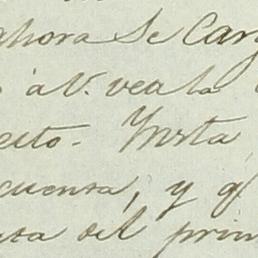 ahora se Car
a V. vea la
eito. Ynsta
cuensa, y q
sa del prim